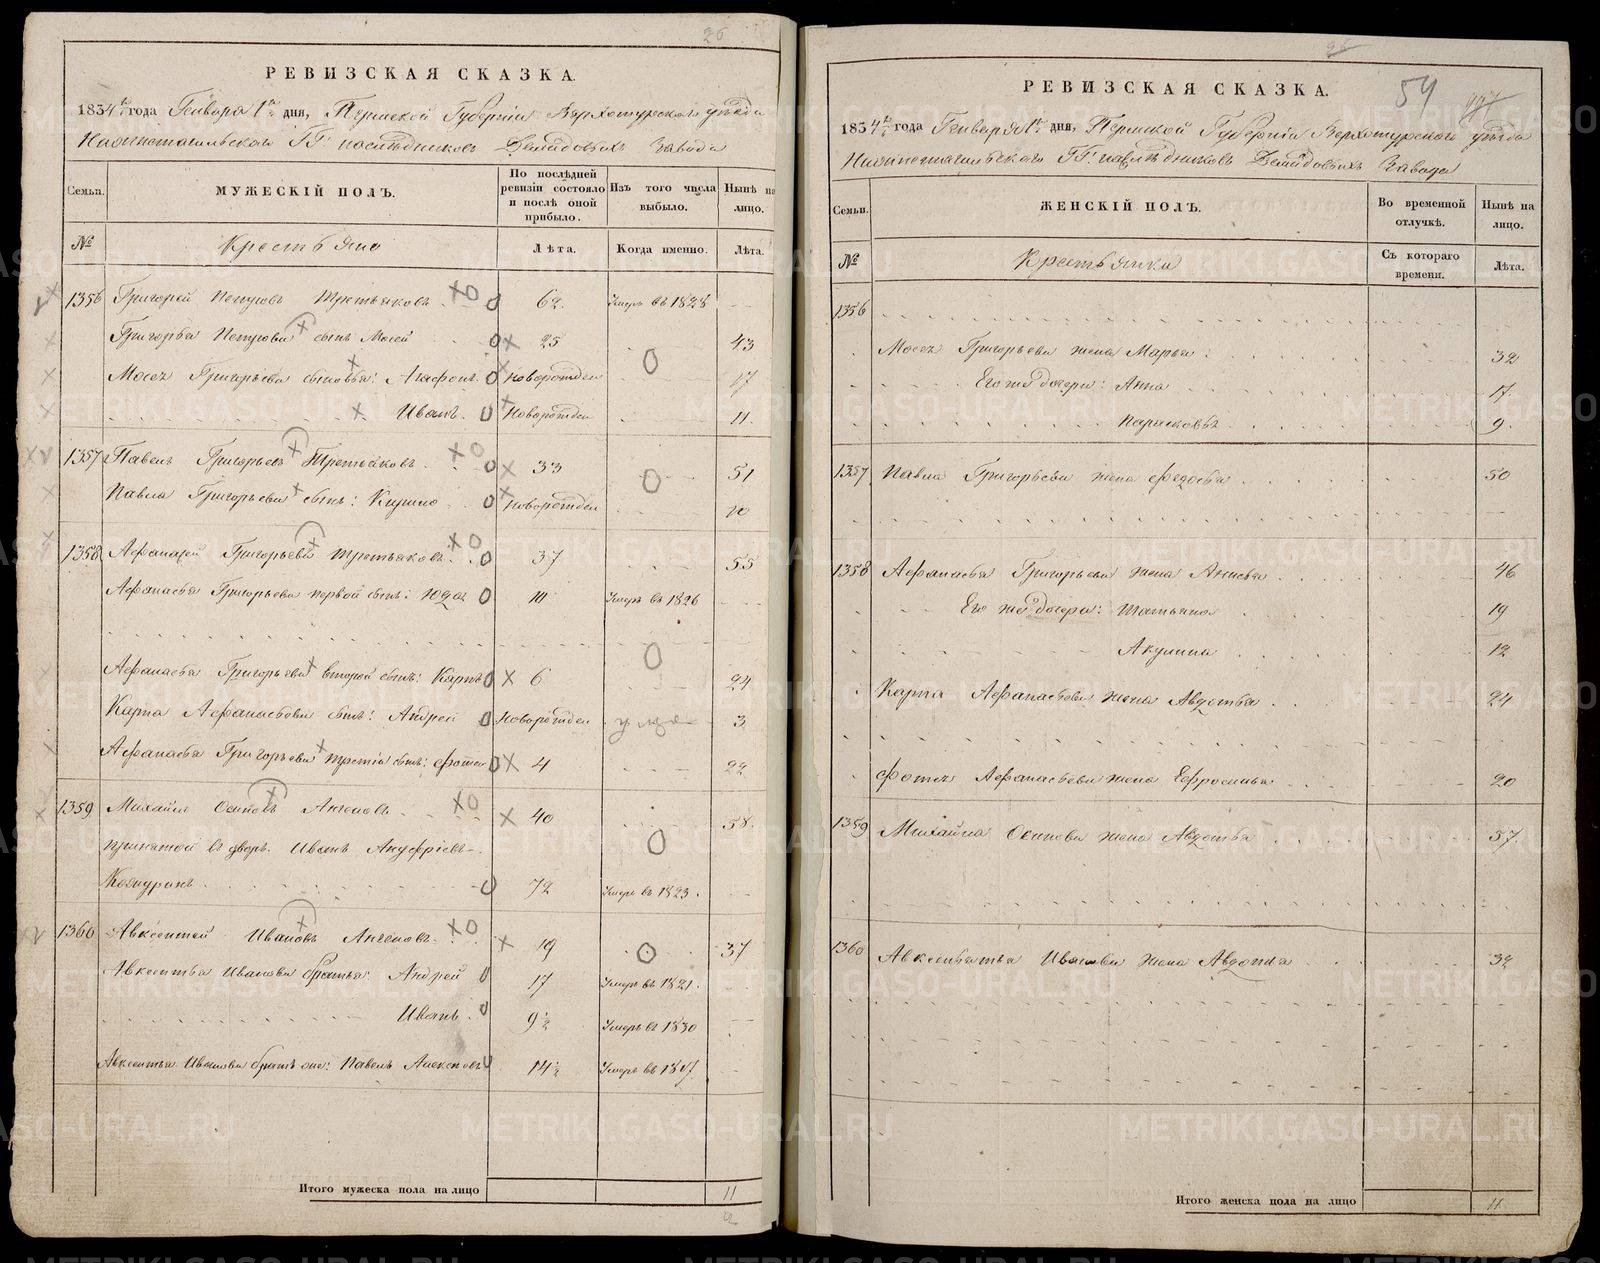 26
РЕВИЗСКАЯ СКАЗКА.
1834го года Генваря 1го дня, Пермской Губерніи Верхотурскаго уѣзда
Нижнетагильскаго ГГ. наслѣдниковъ Демидовыхъ Завода
Семьи.
МУЖЕСКІЙ ПОЛЪ.
По послѣдней ревизіи состояло и послѣ оной прибыло.
Изъ того числа выбыло.
Нынѣ на лицо.
№
Крестьяно
Лѣта.
Когда именно.
Лѣта.
1356 Григорей Петровъ Третьяковъ 62. Умеръ въ 1828
Григорья Петрова сынъ Мосей 25 43
Мосея Григорьева сыновья: Агафонъ новорожден 17
Иванъ. Новорожден 11.
1357 Павелъ Григорьевъ Третьяковъ 33 51
Павла Григорьева сынъ: Кирило новорожден 10
1358 Афанасей Григорьевъ Третьяковъ 37 55
Афанасья Григорьева первой сынъ: Юда Умеръ въ 1826
Афанасья Григорьева второй сынъ: Карпъ 6 24
Карпа Афанасьева сынъ: Андрей Новорожден 3
Афанасья Григорьева третій сынъ: Фотей 4 22
1359 Михайло Осиповъ 40 58.
принятой въ дворъ. Иванъ Ануфріевъ
72 Умеръ въ 1823.
1360 Авксентей Ивановъ 19 37
Авксентья Иванова братья: Андрей 17 Умеръ въ 1821.
Иванъ. 9½ Умеръ въ 1830
Авксентья Иванова братъ Павелъ 14½ Умеръ въ
Итого мужеска пола на лицо 11
26
59
РЕВИЗСКАЯ СКАЗКА.
1834го года Генваря 1го дня, Пермской Губерніи Верхотурскаго уѣзда
Нижнетагильскаго ГГ. наслѣдниковъ Демидовыхъ Завода
Семьи.
ЖЕНСКІЙ ПОЛЪ.
Во временной отлучкѣ.
Нынѣ на лицо.
№
Крестьянки
Съ котораго времени.
Лѣта.
1356
Мосея Григорьева жена Марья: 32
Его же дочери: Анна 17.
Парасковья 9.
1357 Павла Григорьева жена Федосья 50
1358 Афанасья Григорьева жена Анисья 46
Его же дочери: Татьяна 19
Акулина 12
Карпа Афанасьева жена Авдотья 24
Фотея Афанасьева жена Ефросинья 20
1359 Михайла Осипова жена Авдотья 57.
1360 Авксентья Иванова жена Авдотья 32
Итого женска пола на лицо 11
METRIKI.GASO-URAL.RU